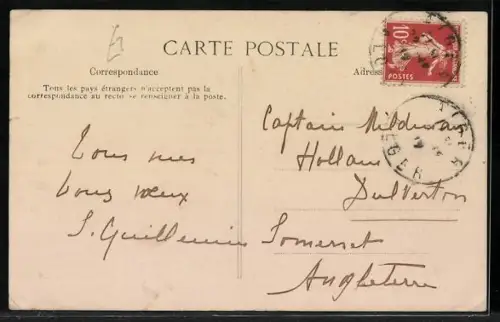 CARTE POSTALE
Correspondance
Tous les pays étrangers n'acceptent pas la
correspondance au recto se renseigner à la poste.
Adres
10c
POSTES
Tous mes
bons vœux
S. Guillemin
Captain Mildmay
Hollam
Dulverton
Somerset
Angleterre